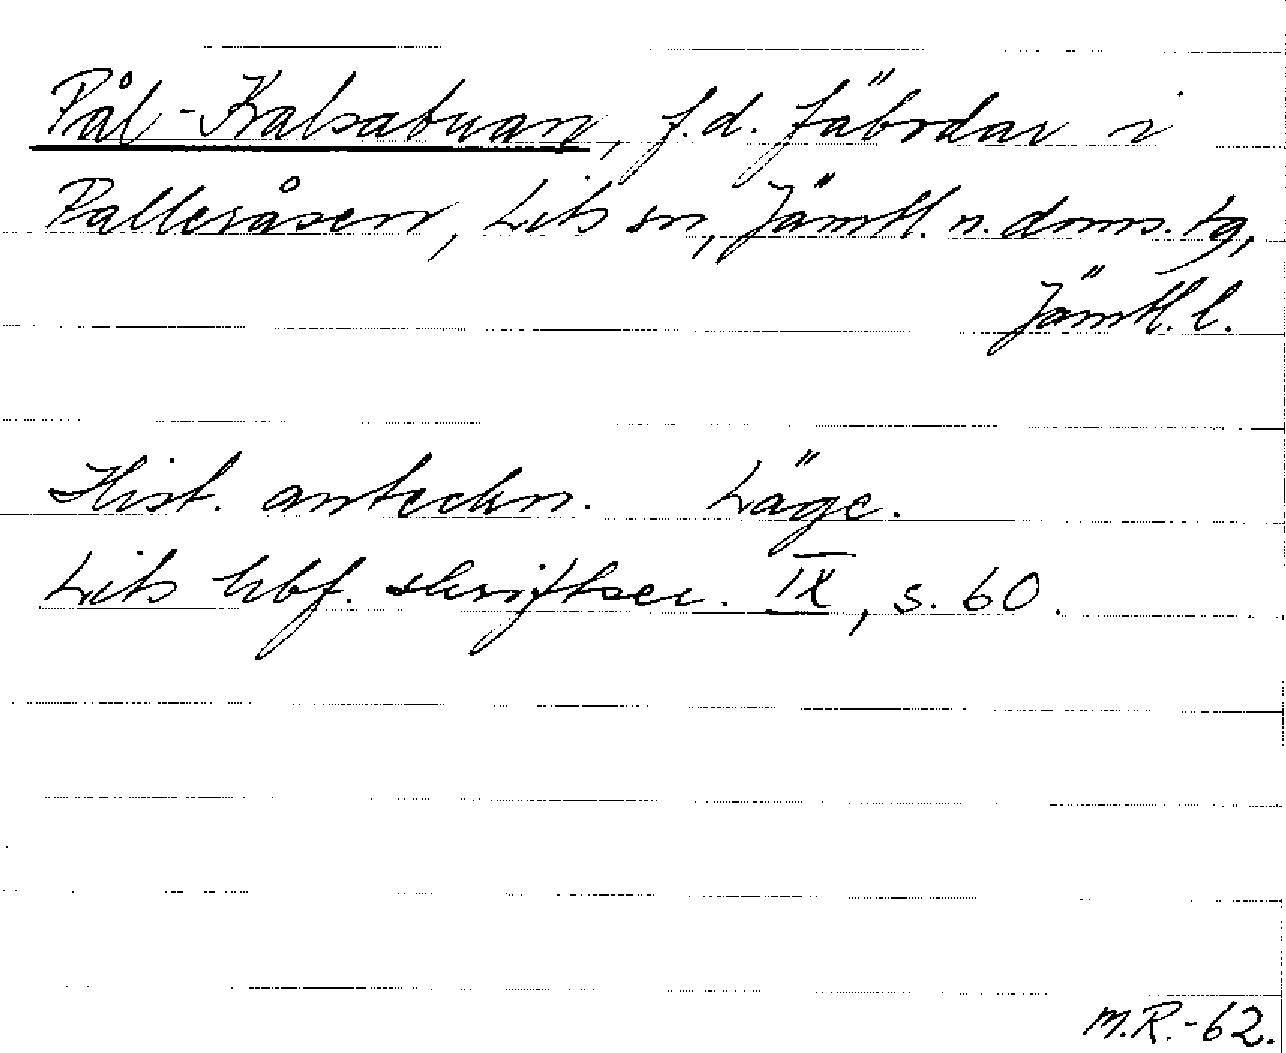 Pål-Kalsabuan, f.d. fäbodar i
Palleråsen, Lits sn, Jämtl. n. doms. tg,
Jämtl. l.
Hist. anteckn. Läge.
Lits hbf. skriftser. IX, s. 60.
M.R.-62.